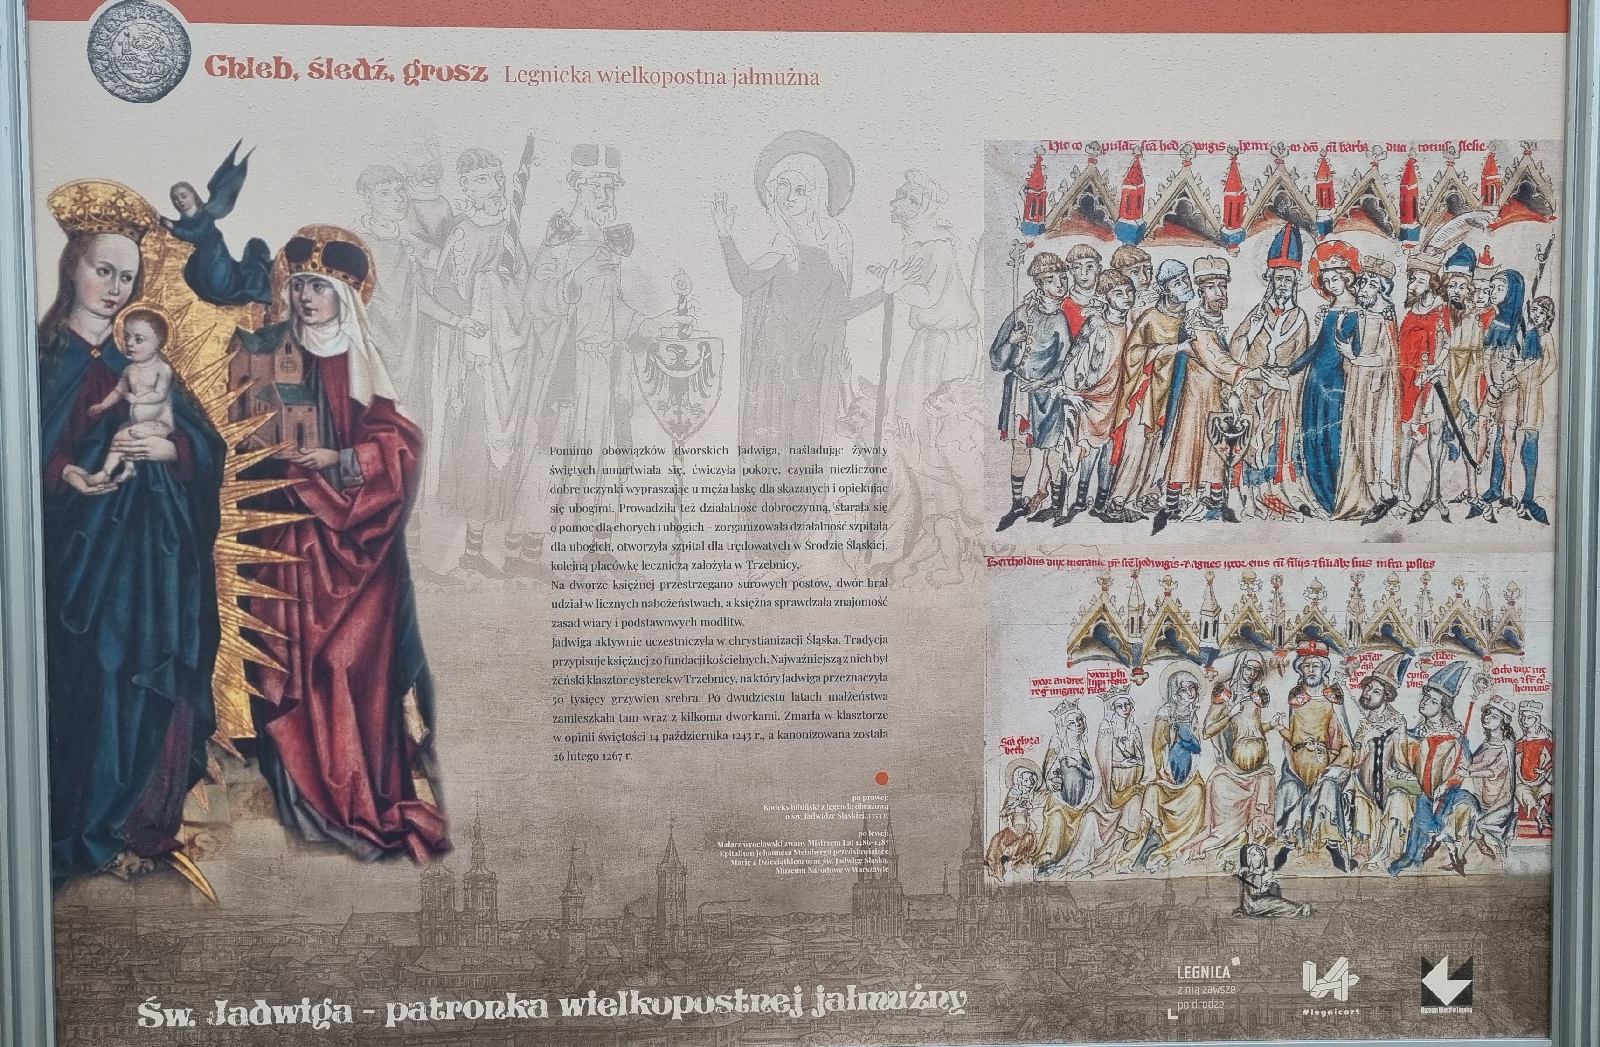 Chleb, śledź, grosz Legnicka wielkopostna jałmużna
Pomimo obowiązków dworskich Jadwiga, naśladując żywoty
świętych umartwiała się, ćwiczyła pokorę, czyniła niezliczone
dobre uczynki wypraszając u męża łaskę dla skazanych i opiekując
się ubogimi. Prowadziła też działalność dobroczynną, starała się
o pomoc dla chorych i ubogich – zorganizowała działalność szpitala
dla ubogich, otworzyła szpital dla trędowatych w Środzie Śląskiej,
kolejną placówkę leczniczą założyła w Trzebnicy.
Na dworze księżnej przestrzegano surowych postów, dwór brał
udział w licznych nabożeństwach, a księżna sprawdzała znajomość
zasad wiary i podstawowych modlitw.
Jadwiga aktywnie uczestniczyła w chrystianizacji Śląska. Tradycja
przypisuje księżnej 20 fundacji kościelnych. Najważniejszą z nich był
żeński klasztor cysterek w Trzebnicy, na który Jadwiga przeznaczyła
50 tysięcy grzywien srebra. Po dwudziestu latach małżeństwa
zamieszkała tam wraz z kilkoma dworkami. Zmarła w klasztorze
w opinii świętości 14 października 1243 r., a kanonizowana została
26 lutego 1267 r.
po prawej:
Kodeks lubiński z legendą obrazową
o św. Jadwidze Śląskiej, 1353 r.
po lewej:
Malarz wrocławski zwany Mistrzem Lat 1486-1487
Epitafium Johannesa Steinberga przedstawiające
Marię z Dzieciątkiem oraz św. Jadwigę Śląską,
Muzeum Narodowe w Warszawie
hedwigis henri barba totius slesie
Bertholdus dux meranie pr sce hedwigis & agnes uxor eius cu filijs & filiab suis infra positis
uxor andree
reg ungarie
Sca elyza
beth
Św. Jadwiga - patronka wielkopostnej jałmużny
LEGNICA
z nią zawsze
po drodze
#legnicart
Muzeum Miedzi w Legnicy